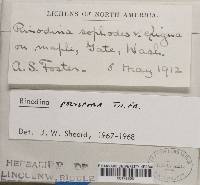 LICHENS OF NORTH AMERICA.
Rinodina sophodes v. exigua
on maple, Gate, Wash.
A. S. Foster. 8 May 1912
Rinodina polyspora Th. Fr.
Det. J. W. Sheard, 1967-1968
HERBARIUM OF
LINCOLN W. RIDDLE